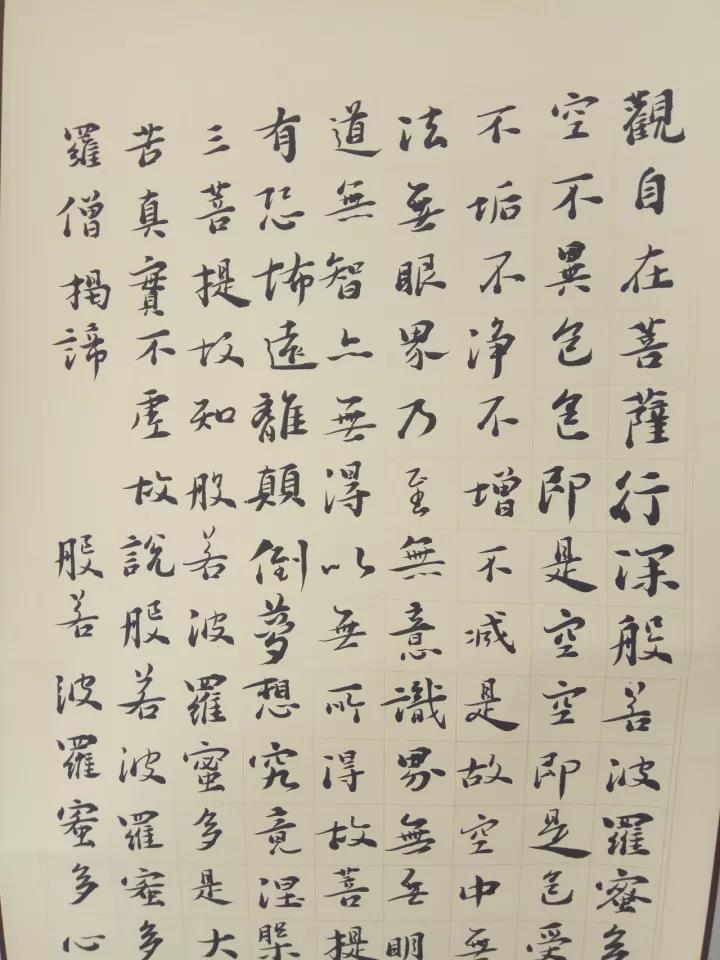 觀自在菩薩行深般若波羅蜜多
空不異色色即是空空即是色受
不垢不淨不增不減是故空中無
法無眼界乃至無意識界無無明
道無智亦無得以無所得故菩提
有恐怖遠離顛倒夢想究竟涅槃
三菩提故知般若波羅蜜多是大
苦真實不虛故說般若波羅蜜多
羅僧揭諦 般若波羅蜜多心